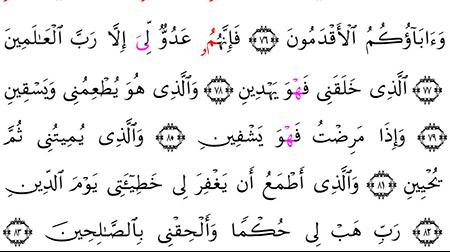 وَءَابَآؤُكُمُ ٱلْأَقْدَمُونَ ٧٦ فَإِنَّهُمُۥ عَدُوٌّ لِّىَ إِلَّا رَبَّ ٱلْعَـٰلَمِينَ
٧٧ ٱلَّذِى خَلَقَنِى فَهْوَ يَهْدِينِ ٧٨ وَٱلَّذِى هُوَ يُطْعِمُنِى وَيَسْقِينِ
٧٩ وَإِذَا مَرِضْتُ فَهْوَ يَشْفِينِ ٨٠ وَٱلَّذِى يُمِيتُنِى ثُمَّ
يُحْيِينِ ٨١ وَٱلَّذِى أَطْمَعُ أَن يَغْفِرَ لِى خَطِيٓـَٔتِى يَوْمَ ٱلدِّينِ
٨٢ رَبِّ هَبْ لِى حُكْمًا وَأَلْحِقْنِى بِٱلصَّـٰلِحِينَ ٨٣